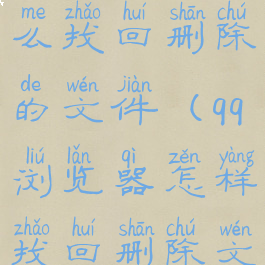 me zhǎo huí shān chú
么找回删除
de wén jiàn
的文件（qq
liú lǎn qì zěn yàng
浏览器怎样
zhǎo huí shān chú wén
找回删除文